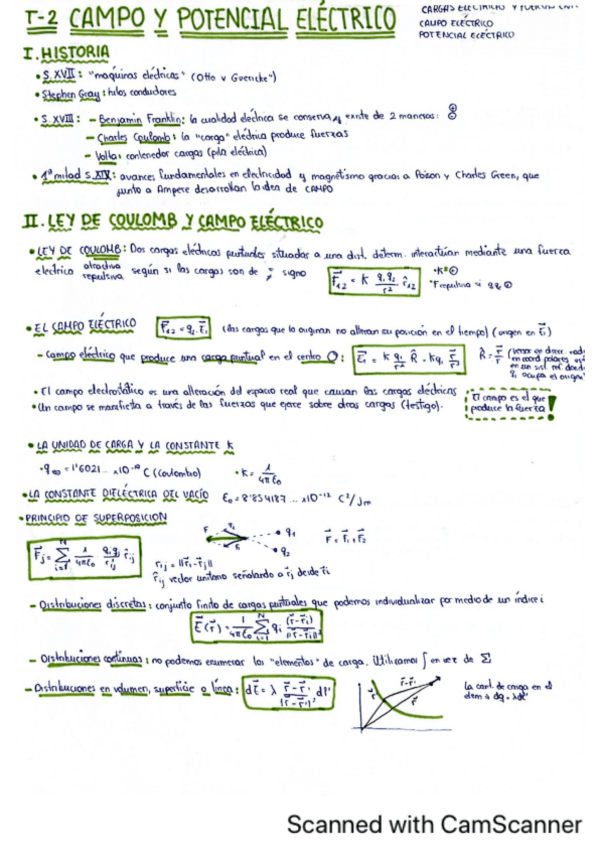 T-2 CAMPO Y POTENCIAL ELÉCTRICO
CAMPO ELÉCTRICO
POTENCIAL ELÉCTRICO
I. HISTORIA
• S. XVII: "maquinas eléctricas" (Otto v Guericke")
• Stephen Gray: tubos conductores
• S. XVIII: - Benjamin Franklin: la cualidad eléctrica se conserva y existe de 2 maneras:
- Charles Coulomb: la "carga" eléctrica produce fuerzas
- Volta: contenedor cargas (pila eléctrica)
• 1ª mitad S. XIX: avances fundamentales en electricidad y magnetismo gracias a Poison y Charles Green, que
junto a Ampere desarrollan la idea de CAMPO
II. LEY DE COULOMB Y CAMPO ELÉCTRICO
• LEY DE COULOMB: Dos cargas eléctricas puntuales situadas a una dist. determ. interactúan mediante una fuerza
electrica atractiva repulsiva según si las cargas son de signo
• EL CAMPO ELÉCTRICO (las cargas que lo originan no alteran su posición en el tiempo)
- Campo eléctrico que produce una carga puntual en el centro O:
• El campo electrostático es una alteración del espacio real que causan las cargas eléctricas
• Un campo se manifiesta a través de las fuerzas que ejerce sobre otras cargas (testigo).
El campo es el que
produce la fuerza!
• LA UNIDAD DE CARGA Y LA CONSTANTE K
• LA CONSTANTE DIELÉCTRICA DEL VACÍO
• PRINCIPIO DE SUPERPOSICION
F = F₁ + F₂
vector unitario señalando a
- Distribuciones discretas: conjunto finito de cargas puntuales que podemos individualizar por medio de un índice i
- Distribuciones continuas: no podemos enumerar los "elementos" de carga. Utilizamos ∫ en vez de Σ
- Distribuciones en volumen, superficie o línea:
La cant. de carga en el
Scanned with CamScanner